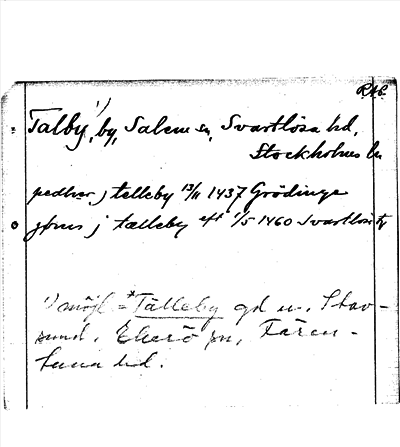 RAÄ.
Talby¹⁾, by, Salem sn, Svartlösa hd,
Stockholms län
pedher j telleby 13/11 1437 Grödinge
jöns j tælleby eft 1/5 1460 Svartlösa
1) möjl = *Tälleby gd u. Stav-
sund, Ekerö sn, Fären-
tuna hd.